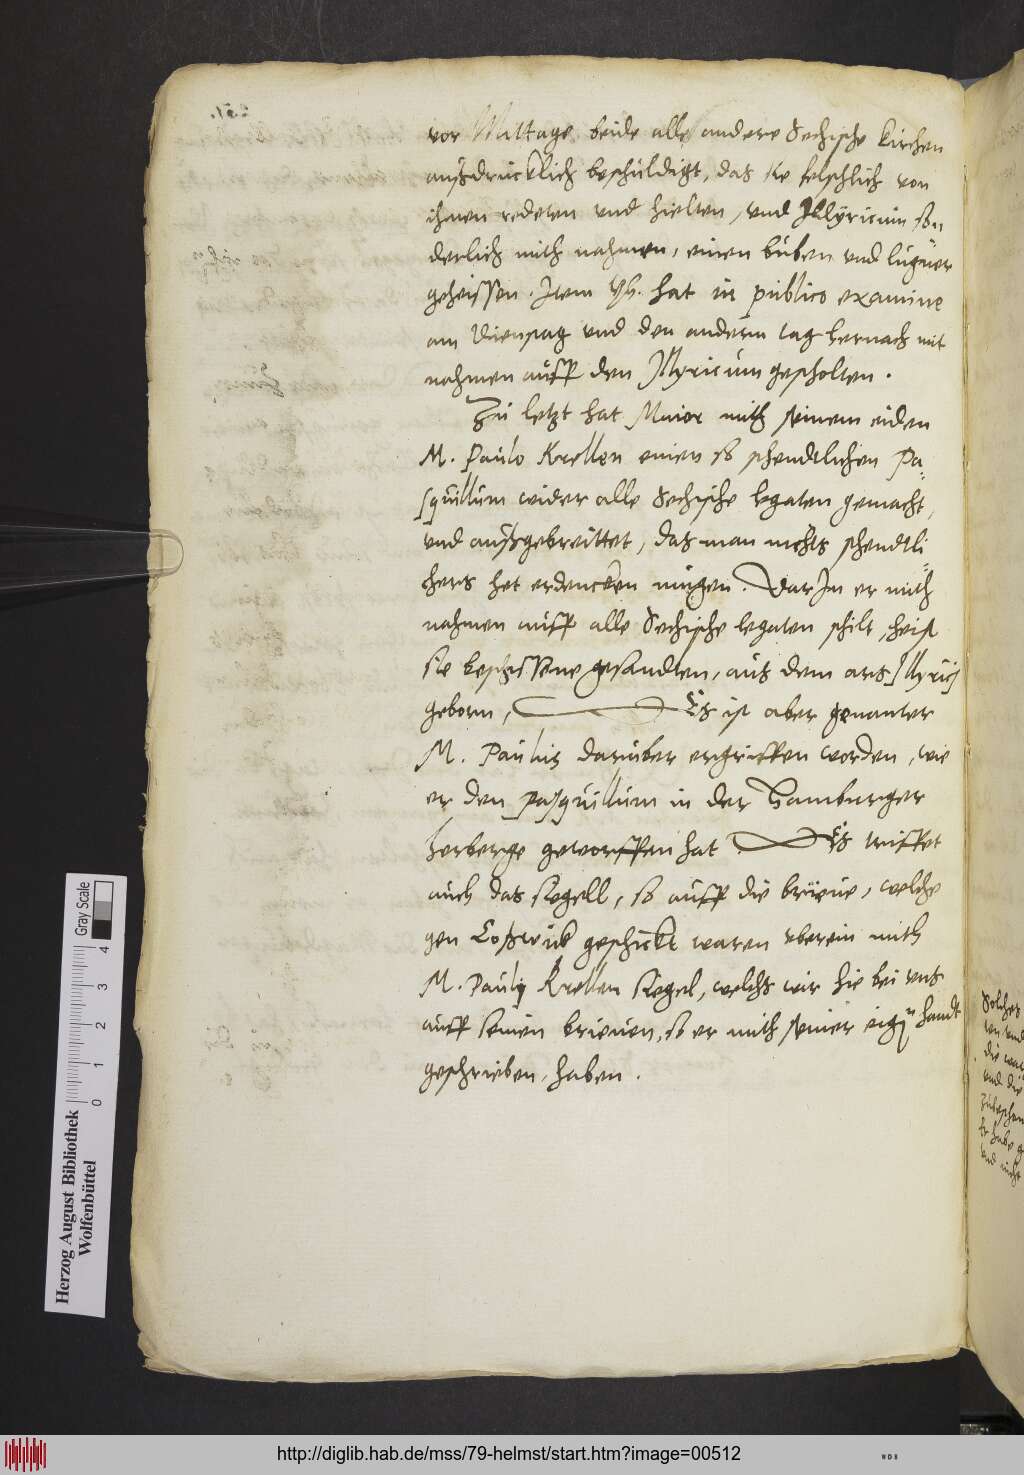 vor Mittage beide alle andere Sechische kirchen
außdrucklich beschuldigt, das sie felschlich von
ihnen redeten und hielten, und Illyricum son
derlich mith nahmen, einen buben und lugner
geheissen. Item Ph. hat in publico examine
am Dienstag und den andern tag hernach mit
nahmen auff den Illyricum gescholten.
Zu letzt hat Maior mith seinem eiden
M. Paulo Krellen einen so schendtlichen Pa-
squillum wider alle Sechische legaten gemacht,
und außgebreittet, das man nichts schendtli-
chers het erdencken mugen. Dar Jn er mith
nahmen auff alle Sechische legaten schilt, heist
sie beschissene gesandten, aus dem ars Illyrici
geborn, Es ist aber genanter
M. Paulus daruber ergriffen worden, wie
er den pasquillum in der Hamburger
herberge geworffen hat. Es triffet
auch das siegell, so auff die brieue, welche
gen Coßwick geschickt waren uberein mith
M. Pauly Krellen siegel, welchs wir hie bei uns
auff seinen brieuen, so er mith seiner eign handt
geschrieben, haben.
Solches
und die
und nicht
Herzog August Bibliothek
Wolfenbüttel
0 1 2 3 4
Gray Scale
http://diglib.hab.de/mss/79-helmst/start.htm?image=00512
WDB